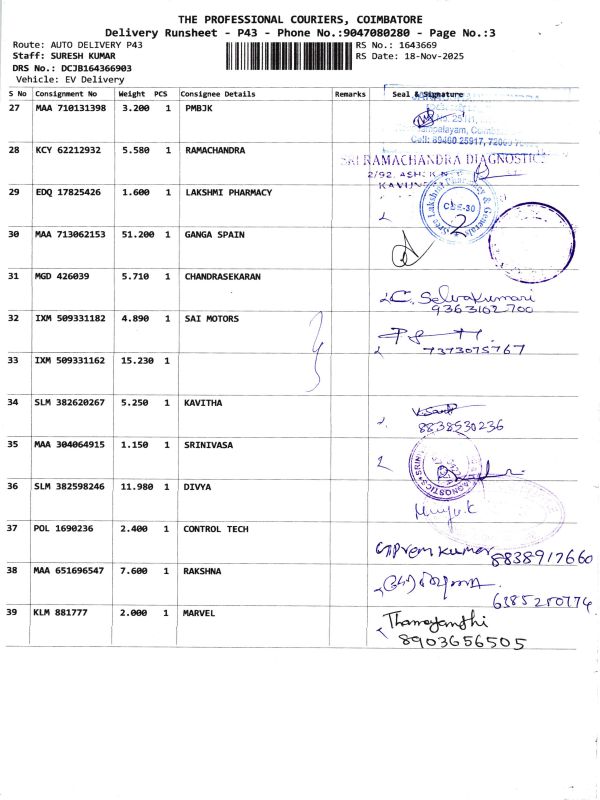 THE PROFESSIONAL COURIERS, COIMBATORE
Delivery Runsheet - P43 - Phone No.:9047080280 - Page No.:3
Route: AUTO DELIVERY P43 RS No.: 1643669
Staff: SURESH KUMAR RS Date: 18-Nov-2025
DRS No.: DCJB164366903
Vehicle: EV Delivery
S No Consignment No Weight PCS Consignee Details Remarks Seal & Signature
27 MAA 710131398 3.200 1 PMBJK
Cell: 89460 25917,
28 KCY 62212932 5.580 1 RAMACHANDRA
SRI RAMACHANDRA DIAGNOSTIC
2/92,
29 EDQ 17825426 1.600 1 LAKSHMI PHARMACY
Sree Lakshmi Pharmacy & Generals
CBE-30
30 MAA 713062153 51.200 1 GANGA SPAIN
31 MGD 426039 5.710 1 CHANDRASEKARAN
C. Selvakumari
9363102700
32 IXM 509331182 4.890 1 SAI MOTORS
7373075767
33 IXM 509331162 15.230 1
34 SLM 382620267 5.250 1 KAVITHA
8838530236
35 MAA 304064915 1.150 1 SRINIVASA
36 SLM 382598246 11.980 1 DIVYA
37 POL 1690236 2.400 1 CONTROL TECH
Prem Kumar 8838917660
38 MAA 651696547 7.600 1 RAKSHNA
39 KLM 881777 2.000 1 MARVEL
Thamayanthi
8903656505